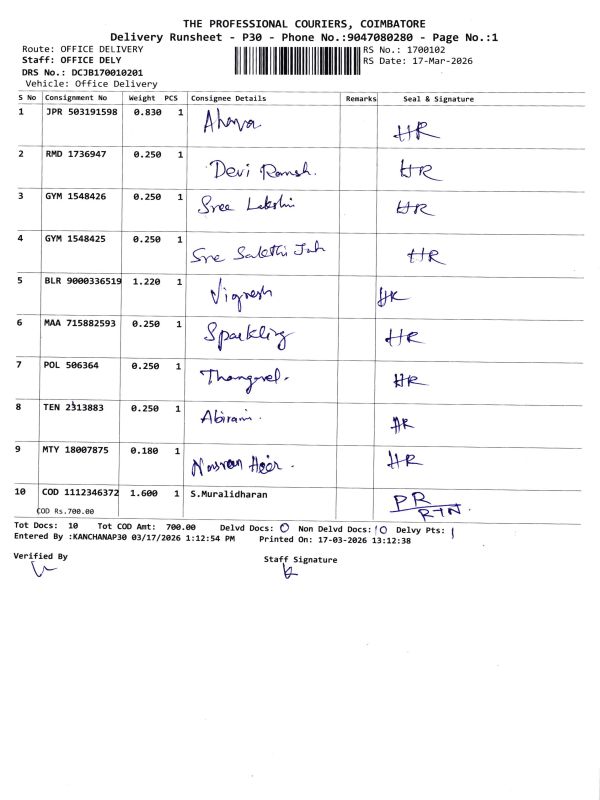 THE PROFESSIONAL COURIERS, COIMBATORE
Delivery Runsheet - P30 - Phone No.:9047080280 - Page No.:1
Route: OFFICE DELIVERY RS No.: 1700102
Staff: OFFICE DELY RS Date: 17-Mar-2026
DRS No.: DCJB170010201
Vehicle: Office Delivery
S No Consignment No Weight PCS Consignee Details Remarks Seal & Signature
1 JPR 503191598 0.830 1 HR
2 RMD 1736947 0.250 1 Devi Ramsh. HR
3 GYM 1548426 0.250 1 Sree Lakshi HR
4 GYM 1548425 0.250 1 Sre Sakthi HR
5 BLR 9000336519 1.220 1 Vignesh HR
6 MAA 715882593 0.250 1 Sparkling HR
7 POL 506364 0.250 1 Thangvel. HR
8 TEN 2313883 0.250 1 Abirami. HR
9 MTY 18007875 0.180 1 HR
10 COD 1112346372 1.600 1 S.Muralidharan PR
COD Rs.700.00 RTN.
Tot Docs: 10 Tot COD Amt: 700.00 Delvd Docs: 0 Non Delvd Docs: 10 Delvy Pts: 1
Entered By :KANCHANAP30 03/17/2026 1:12:54 PM Printed On: 17-03-2026 13:12:38
Verified By Staff Signature